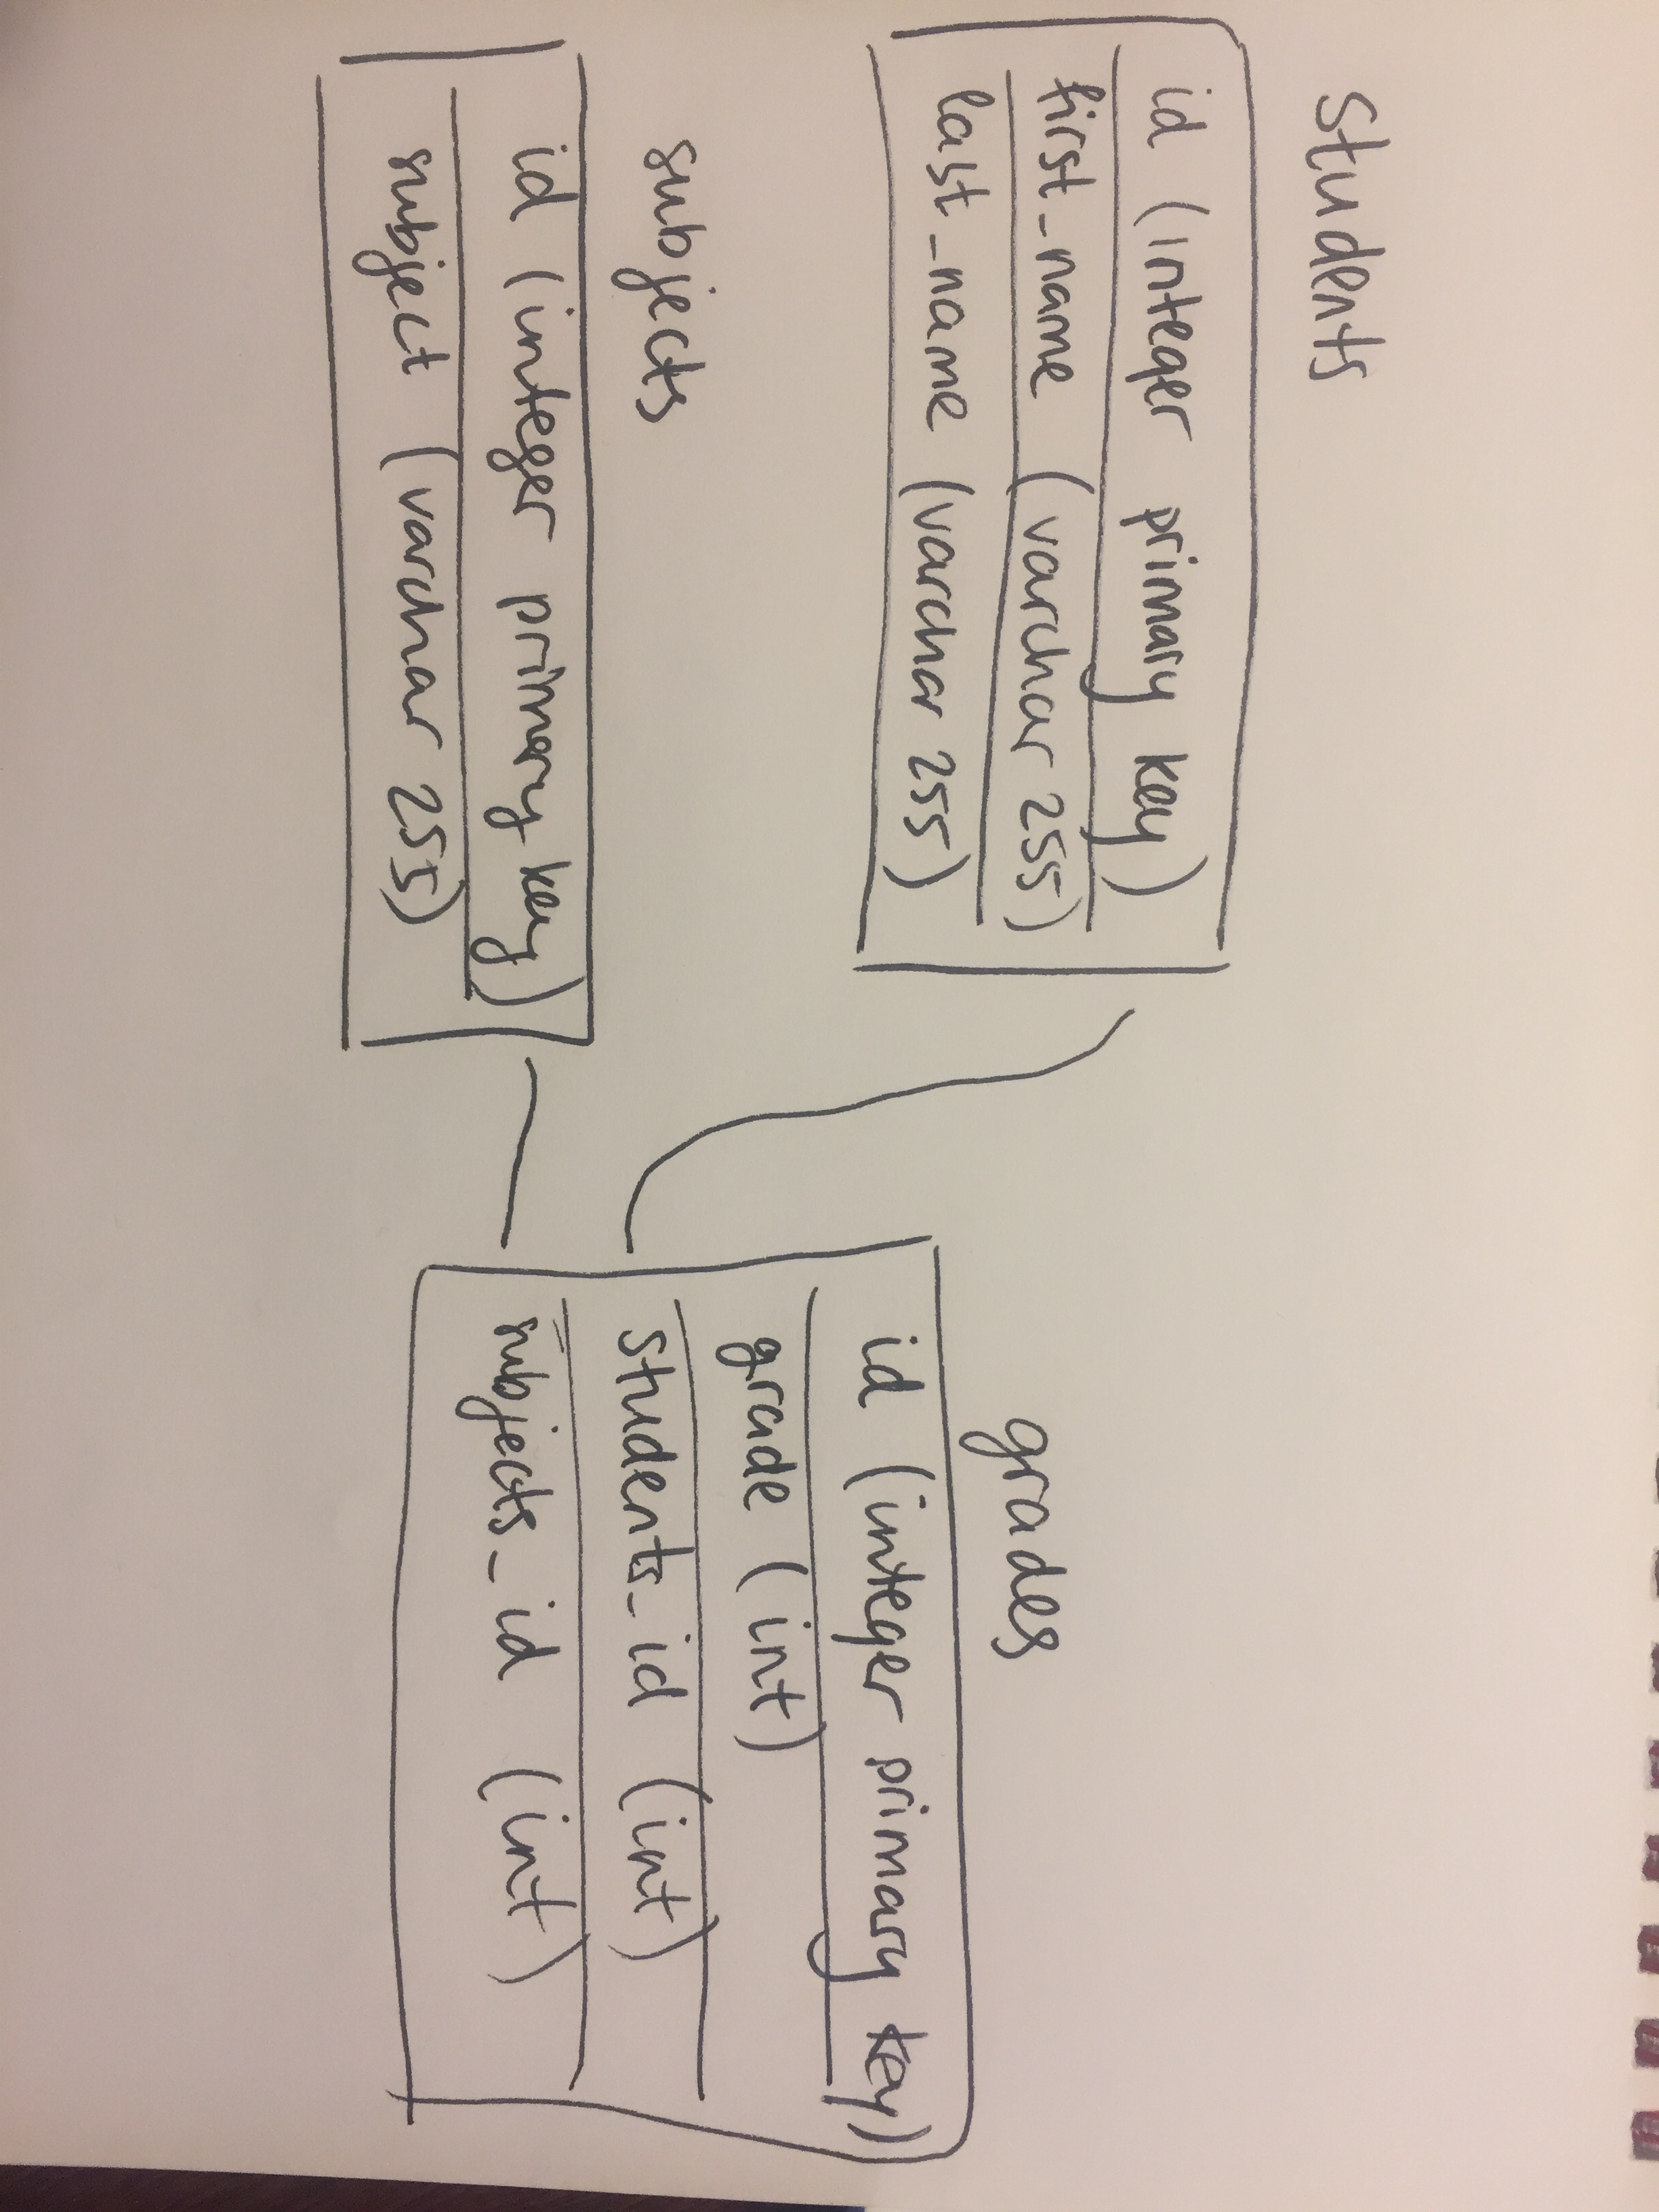 students
id (integer primary key)
first_name (varchar 255)
last_name (varchar 255)
subjects
id (integer primary key)
subject (varchar 255)
grades
id (integer primary key)
grade (int)
students_id (int)
subjects_id (int)